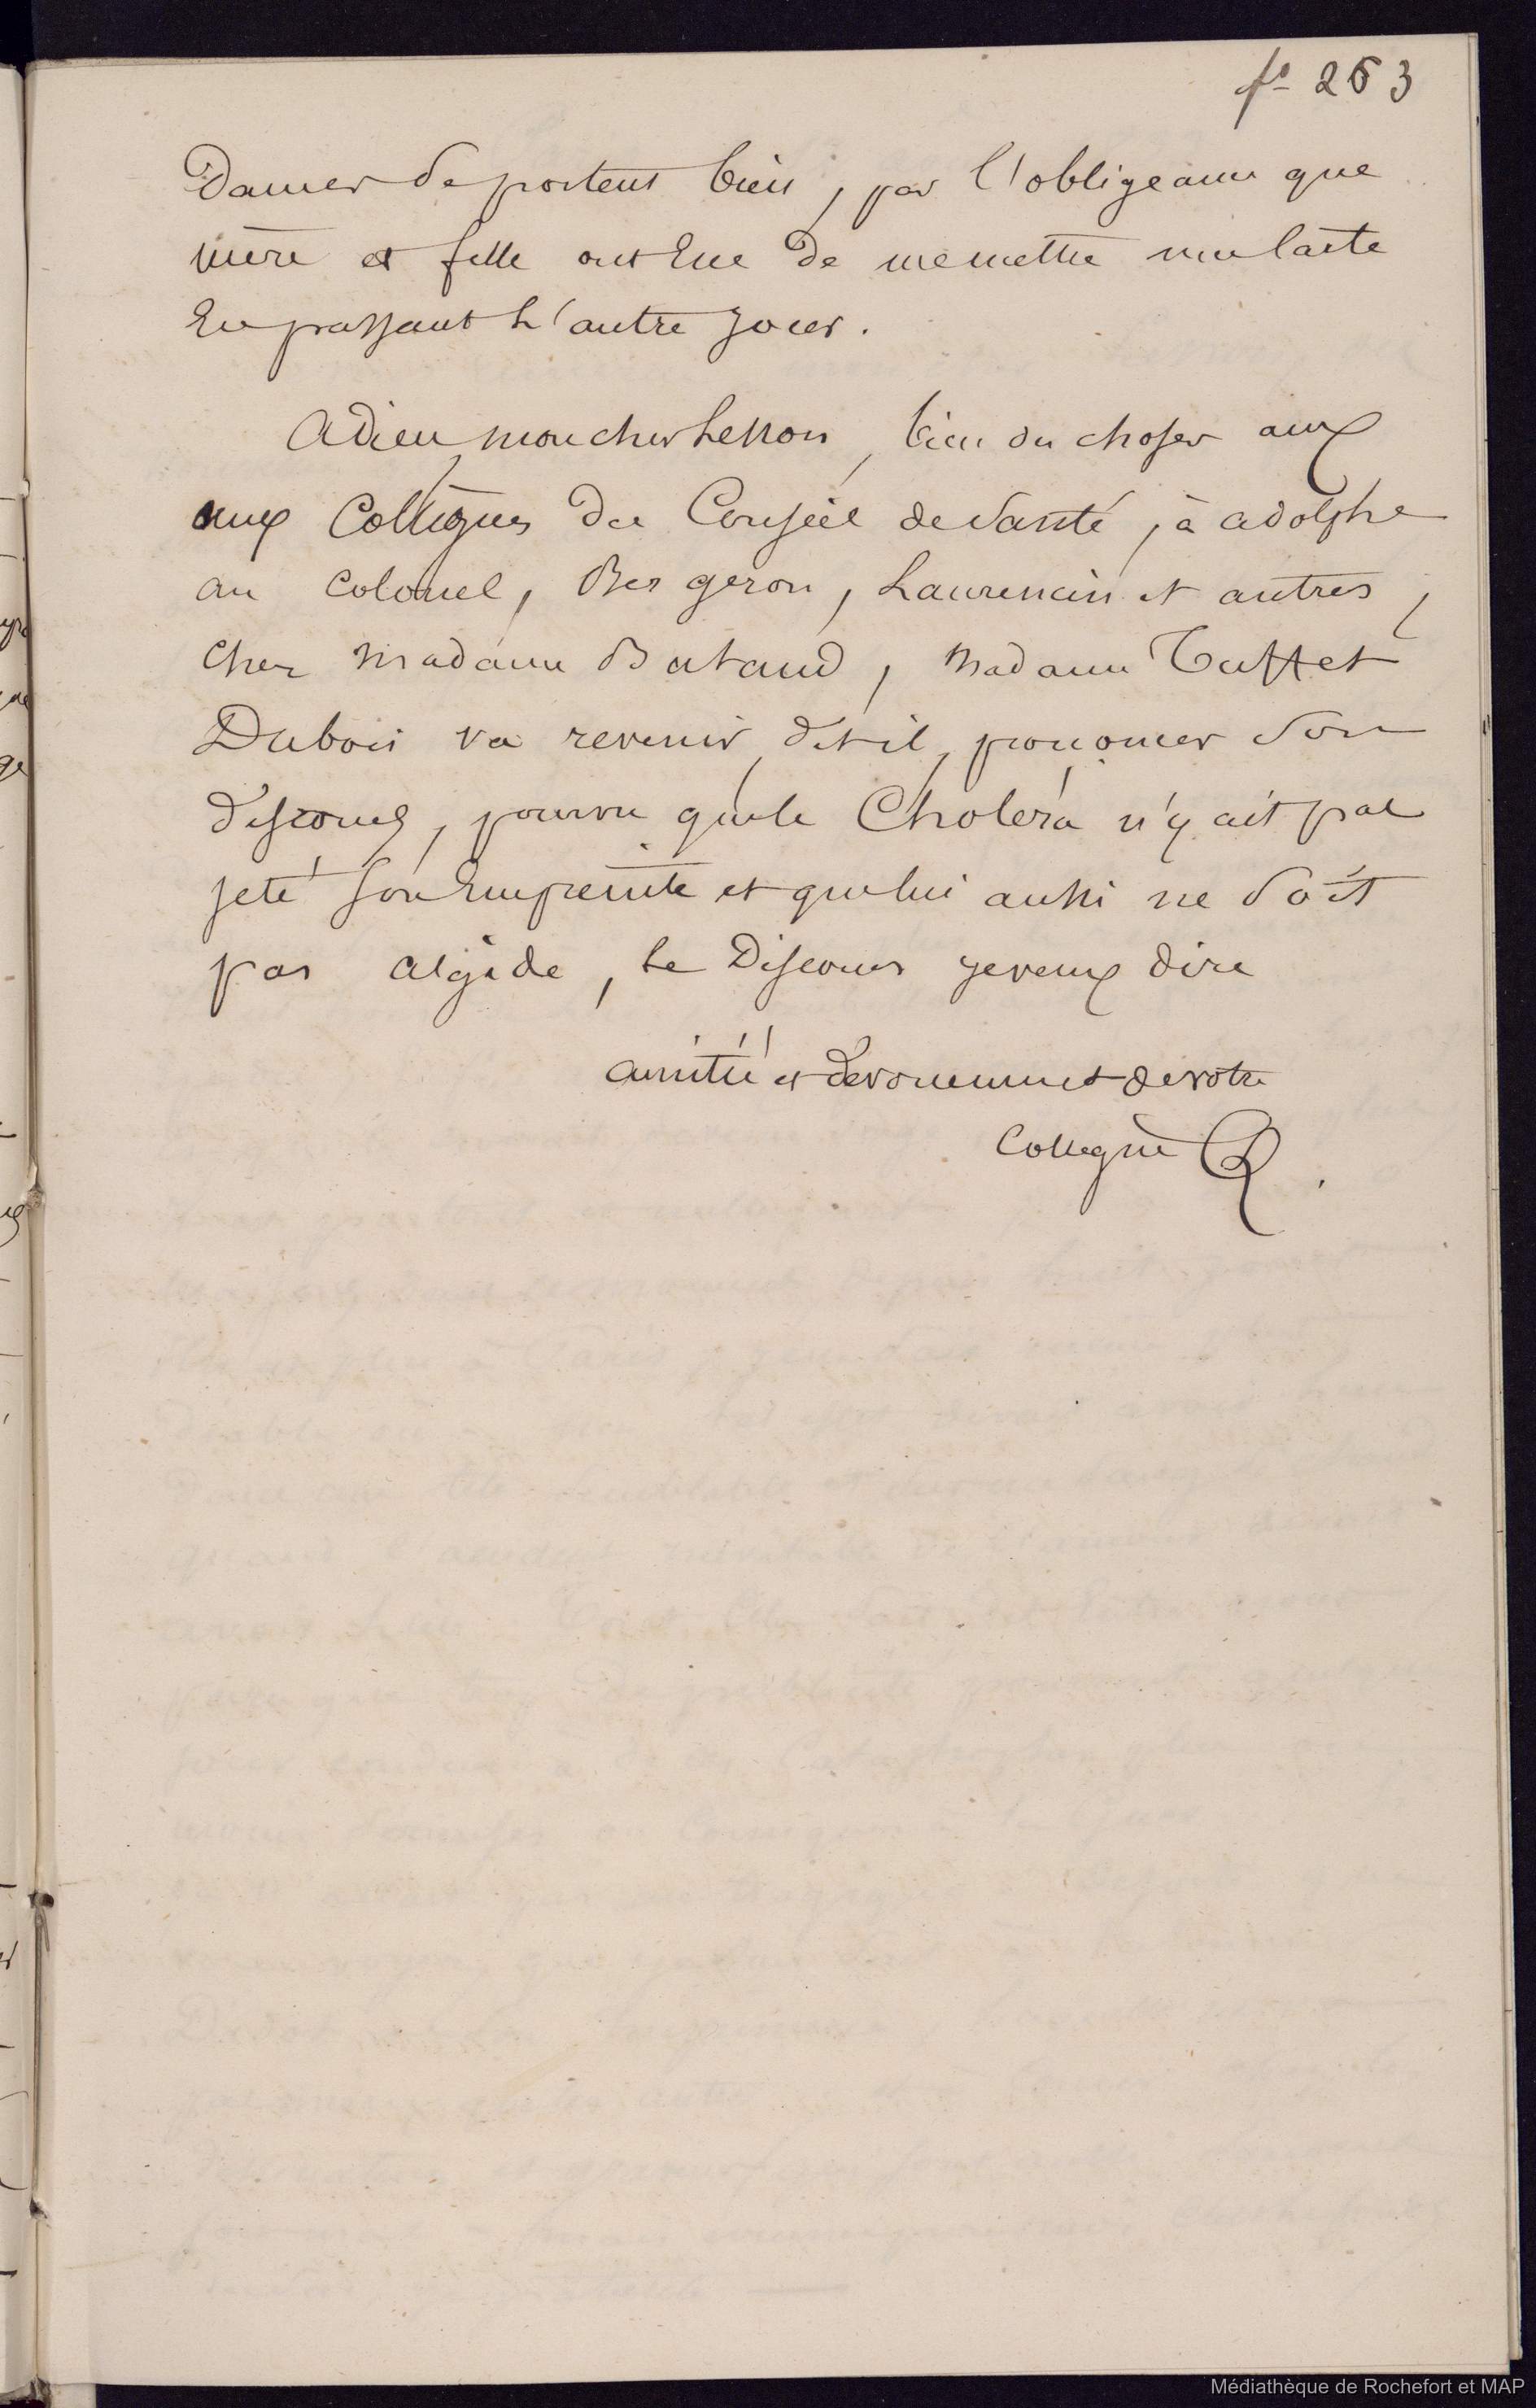 fo 263
Dames se portent bien, par l'obligeance que
mère et fille ont Eue de me mettre une Carte
En passant L'autre jour.
Adieu, mon cher Lesson, bien des choses aux
aux Collègues du Conseil de Santé, à adolphe
au Colonel, Bergeron, Laurencin et autres,
Chez Madame Bataud, Madame Tuffet
Dubois va revenir, dit-il, prononcer Son
discours, pourvu que le Choléra n'y ait pas
jeté son Empreinte et que lui aussi ne Soit
pas algide, Le Discours je veux dire
amitié et dévouement de votre
Collègue R.
Médiathèque de Rochefort et MAP